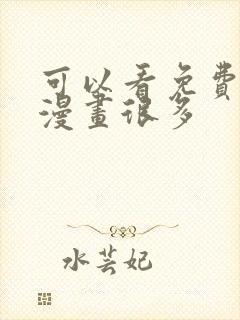 可以看免費
漫畫很多
水芸妃